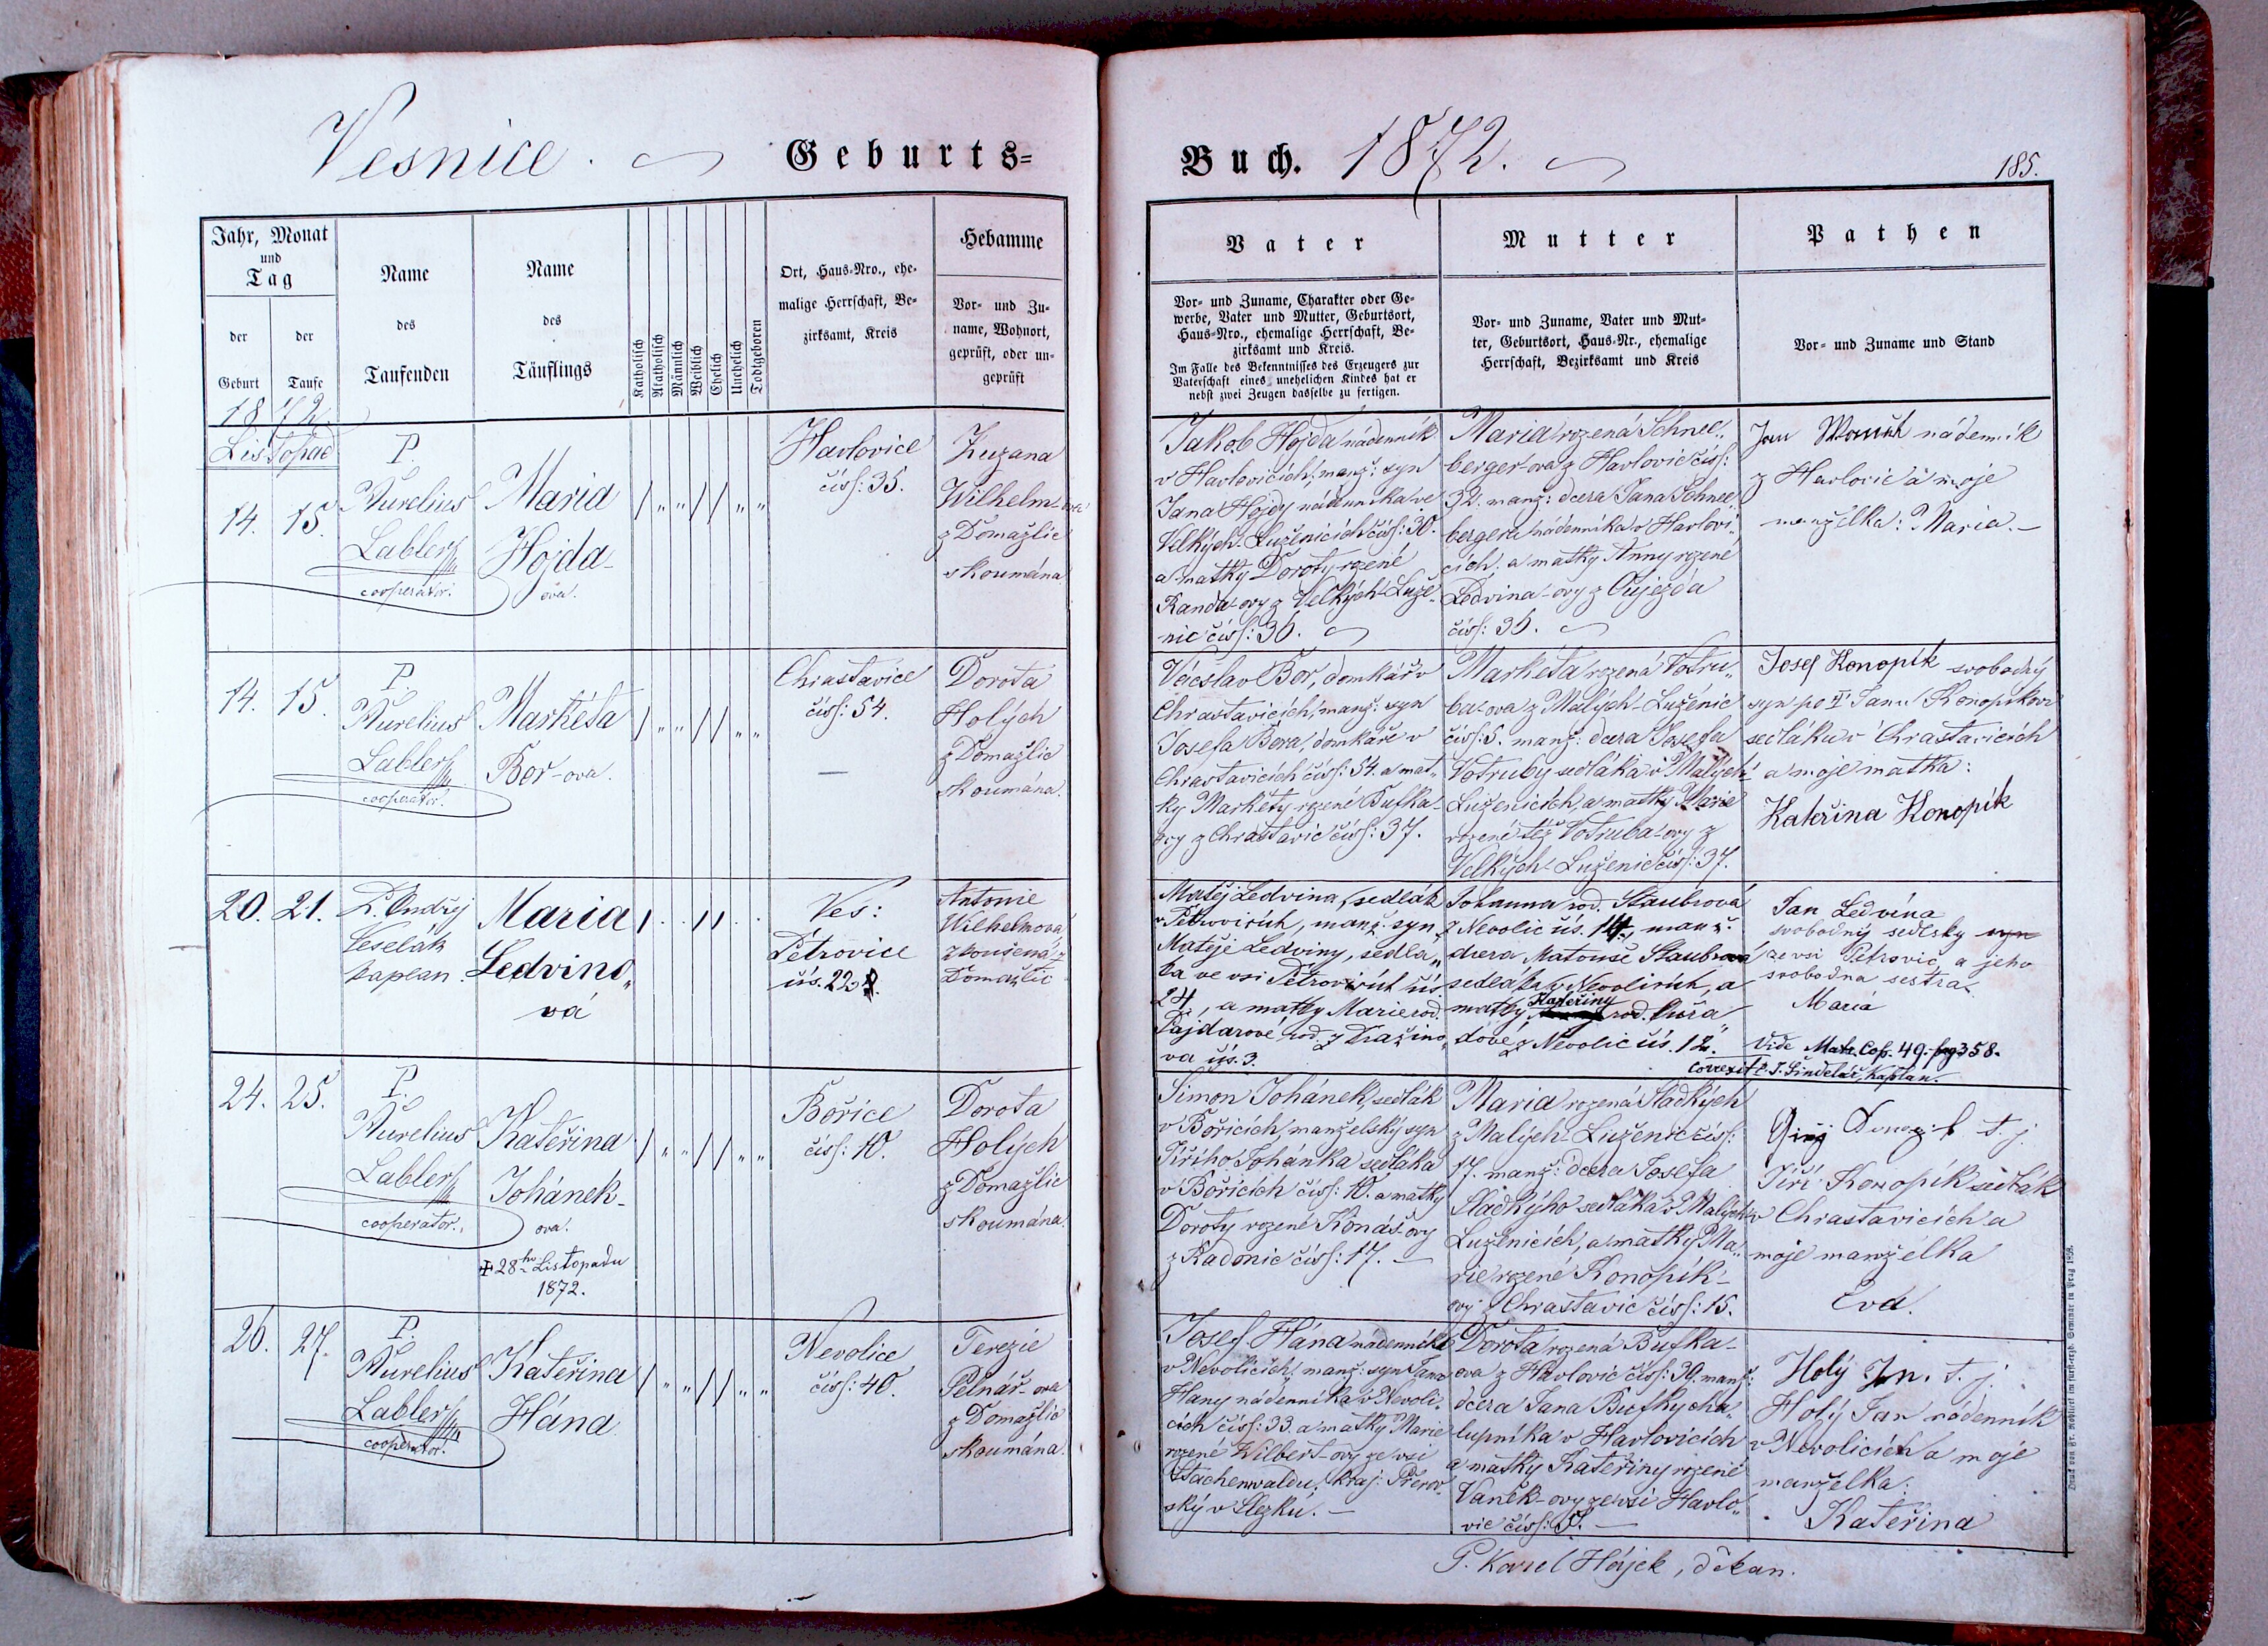 Vesnice.
Geburts=
Jahr, Monat
und
Tag
der
Geburt
der
Taufe
Name
des
Taufenden
Name
des
Täuflings
Katholisch
Akatholisch
Männlich
Weiblich
Ehelich
Unehelich
Todtgeboren
Ort, Haus-Nro., ehe-
malige Herrschaft, Be-
zirksamt, Kreis
Hebamme
Vor- und Zu-
name, Wohnort,
geprüft, oder un-
geprüft
1872.
Listopad
14. 15.
P.
Aurelius
Labler
cooperator.
Maria
Hojda-
ova.
Havlovice
čísl: 35.
Zuzana
Wilhelm-ova
z Domažlic
skoumána
14. 15.
P.
Aurelius
Labler
cooperator.
Markéta
Bor-ova.
Chrastavice
čísl: 54.
Dorota
Holých
z Domažlic
skoumána.
20. 21.
P. Ondřej
Veselák
kaplan.
Maria
Ledvino„
vá
Ves:
Petrovice
čís. 22
Antonie
Wilhelmová
zkoušená z
Domažlic
24. 25.
P.
Aurelius
Labler
cooperator.
Kateřina
Johánek-
ova.
✠ 28ho Listopadu
1872.
Bořice
čísl: 10.
Dorota
Holých
z Domažlic
skoumána.
26. 27.
P.
Aurelius
Labler
cooperator.
Kateřina
Hána
Nevolice
čísl: 40.
Terezie
Pelnář-ova
z Domažlic
skoumána.
Buch. 1872.
185.
Vater
Vor- und Zuname, Charakter oder Ge-
werbe, Vater und Mutter, Geburtsort,
Haus-Nro., ehemalige Herrschaft, Be-
zirksamt und Kreis.
Im Falle des Bekenntnisses des Erzeugers zur
Vaterschaft eines unehelichen Kindes hat er
nebst zwei Zeugen dasselbe zu fertigen.
Mutter
Vor- und Zuname, Vater und Mut-
ter, Geburtsort, Haus-Nr., ehemalige
Herrschaft, Bezirksamt und Kreis
Pathen
Vor- und Zuname und Stand
Jakob Hojda nádenník
v Havlovicích, manž: syn
Jana Hojdy nádenníka ve
Velkých-Luženicích čísl: 30.
a matky Doroty rozené
Randa-ovy z Velkých-Luže„
nic čísl: 36.
Maria rozená Schnee„
berger-ova z Havlovic čísl:
32. manž: dcera Jana Schnee„
bergera nádenníka v Havlovi„
cích, a matky Anny rozené
Ledvina-ovy z Oujezda
čísl: 36.
Jan nádenník
z Havlovic a moje
manželka: Maria.
Václav Bor, domkář v
Chrastavicích, manž: syn
Josefa Bora, domkáře v
Chrastavicích čísl: 54. a mat„
ky Markéty rozené Bufka-
ovy z Chrastavic čísl: 37.
Markéta rozená Votru„
ba-ova z Malých-Luženic
čísl: 5. manž: dcera Josefa
Votruby sedláka v Malých-
Luženicích, a matky Marie
rozené též Votruba-ovy z
Velkých-Luženic čísl: 37.
Josef Konopík svobodný
syn po Janu Konopíkovi
sedláku v Chrastavicích
a moje matka:
Kateřina Konopík
Matěj Ledvina, sedlák
v Petrovicích, manž. syn
Matěje Ledviny, sedlá„
ka ve vsi Petrovicích čís
24, a matky Marie rod.
Pajdarové rod. z Dražino„
va čís. 3.
Johanna rod. Staubrová
z Nevolic čís. 14., manž.
dcera Matouše Staubra
sedláka v Nevolicích, a
matky Kateřiny rod. Cuřa„
dové z Nevolic čís. 12.
Jan Ledvina
svobodný sedlský syn
ze vsi Petrovic a jeho
svobodna sestra
Maria
Vide Matr. Cop. 49. pag 358.
Correxit P. J. Šindelář, Kaplan.
Šimon Johánek, sedlák
v Bořicích, manželský syn
Jiřího Johánka sedláka
v Bořicích čísl: 10. a matky
Doroty rozené Konáš-ovy
z Radonic čísl: 17.
Maria rozená Sladkých
z Malých-Luženic čísl:
17. manž: dcera Josefa
Sladkýho sedláka v Malých-
Luženicích, a matky Ma„
rie rozené Konopík-
ovy z Chrastavic čísl: 15.
t. j.
Jiří Konopík sedlák
v Chrastavicích a
moje manželka
Eva.
Josef Hána nádenník
v Nevolicích, manž: syn Jana
Hany nádenníka v Nevoli„
cích čísl: 33. a matky Marie
rozené Wilbert-ovy ze vsi
Stachenwaldu, kraj: Přerov„
ský v Slezku.
Dorota rozená Bufka-
ova z Havlovic čísl: 30. manž:
dcera Jana Bufky cha„
lupníka v Havlovicích
a matky Kateřiny rozené
Vaněk-ovy ze vsi Havlo„
vic čísl: 5.
Holý Jan. t. j.
Holý Jan nádenník
v Nevolicích a moje
manželka:
Kateřina
P. Karel Hájek, děkan.